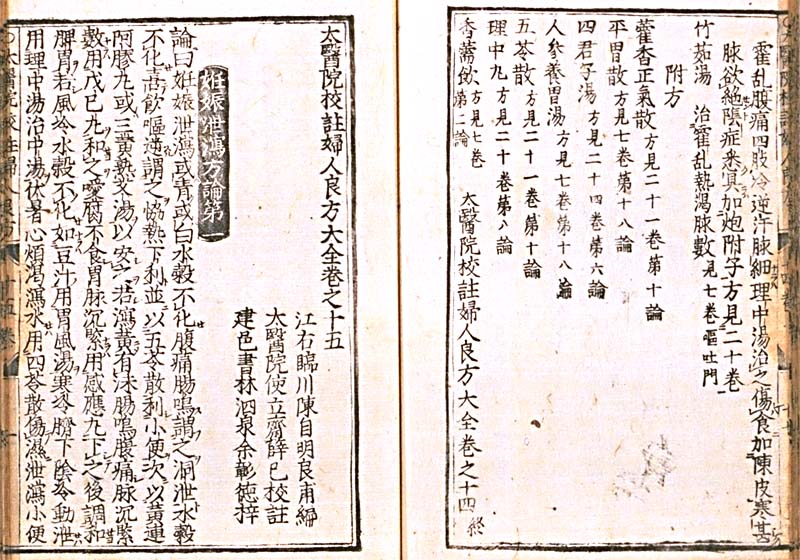 霍乱腹痛四肢冷逆汗脉細理中湯治之傷食加陳皮寒甚
脉欲絶陰症悉具加炮附子方見二十卷
竹茹湯 治霍乱熱渇脉數見七卷嘔吐門
附方
藿香正氣散方見二十一卷第十論
平胃散方見七卷第十八論
四君子湯方見二十四卷第六論
人參養胃湯方見七卷第十八論
五苓散方見二十一卷第十論
理中九方見二十卷第八論
香薷飲方見七卷第二論
太醫院校註婦人良方大全卷之十四終
太醫院校註婦人良方大全卷之十五
江右臨川陳自明良甫編
太醫院使立齋薛已校註
建邑書林泗泉余彰德梓
妊娠泄瀉方論第一
論曰妊娠泄瀉或青或白水穀不化腹痛腸鳴謂之洞泄水穀
不化喜飲嘔逆謂之恊熱下利並以五苓散利小便次以黄連
阿膠九或三黄熟艾湯以安之若瀉黄有沫腸鳴腹痛脉沉緊
數用戊已九和之噯腐不食胃脉沉緊用感應九下之後調和
脾胃若風冷水穀不化如豆汁用胃風湯寒冷臍下陰冷動泄
用理中湯治中湯伏暑心煩渇瀉水用四苓散傷濕泄瀉小便